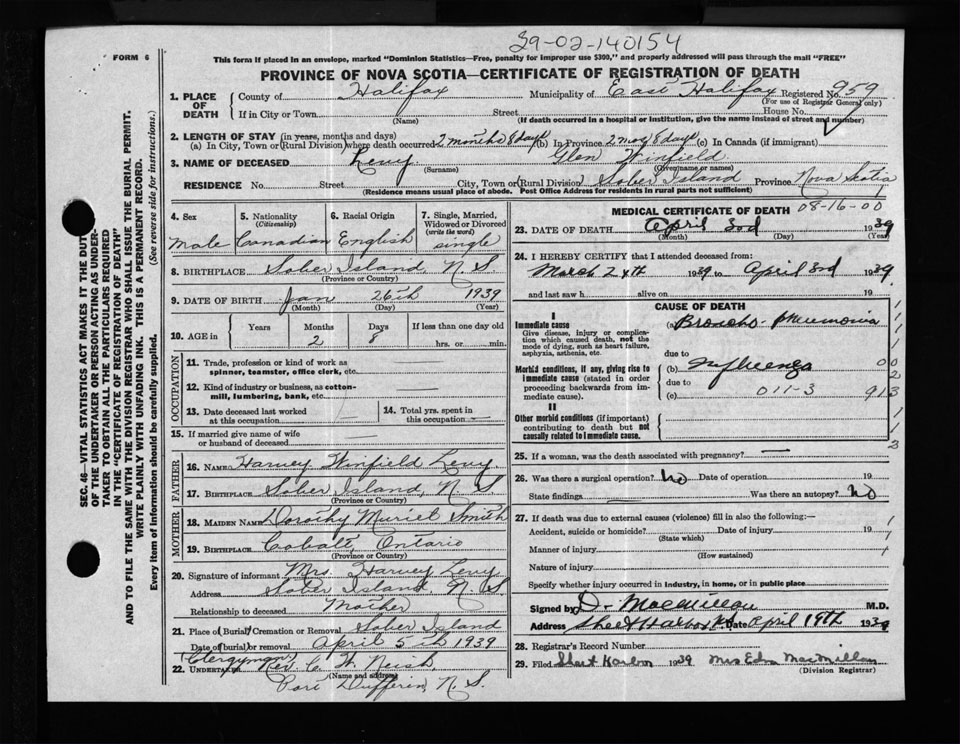 39-02-140154
FORM 6
This form if placed in an envelope, marked "Dominion Statistics—Free, penalty for improper use $300," and properly addressed will pass through the mail "FREE"
PROVINCE OF NOVA SCOTIA—CERTIFICATE OF REGISTRATION OF DEATH
1. PLACE OF DEATH County of Halifax Municipality of East Halifax Registered No. 959
(For use of Registrar General only)
If in City or Town Street House No.
(Name) (If death occurred in a hospital or institution, give the name instead of street and number)
2. LENGTH OF STAY (in years, months and days)
(a) In City, Town or (Rural Division) where death occurred 2 months 8 days (b) In Province 2 mos 8 days (c) In Canada (if immigrant)
3. NAME OF DECEASED Levy Glen Winfield
(Surname) (Given name or names)
RESIDENCE No. Street City, Town or (Rural Division) Sober Island Province Nova Scotia
(Residence means usual place of abode. Post Office Address for residents in rural parts not sufficient)
4. Sex 5. Nationality (Citizenship) 6. Racial Origin 7. Single, Married, Widowed or Divorced (write the word)
Male Canadian English single
8. BIRTHPLACE Sober Island, N.S.
(Province or Country)
9. DATE OF BIRTH Jan 26th 1939
(Month) (Day) (Year)
10. AGE in Years Months Days If less than one day old
2 8 hrs. or min.
OCCUPATION
11. Trade, profession or kind of work as spinner, teamster, office clerk, etc.
12. Kind of industry or business, as cotton-mill, lumbering, bank, etc.
13. Date deceased last worked at this occupation 14. Total yrs. spent in this occupation
15. If married give name of wife or husband of deceased
FATHER
16. NAME Harvey Winfield Levy
17. BIRTHPLACE Sober Island, N.S.
(Province or Country)
MOTHER
18. MAIDEN NAME Dorothy Muriel Smith
19. BIRTHPLACE Cobalt, Ontario
(Province or Country)
20. Signature of informant Mrs. Harvey Levy
Address Sober Island, N S
Relationship to deceased Mother
21. Place of (Burial) Cremation or Removal Sober Island
Date of (burial) or removal April 5th 1939
(Clergyman)
22. UNDERTAKER Rev. C. W. Neish,
(Name and address)
Port Dufferin, N.S.
MEDICAL CERTIFICATE OF DEATH 08-16-00
23. DATE OF DEATH April 3rd 1939
(Month) (Day) (Year)
24. I HEREBY CERTIFY that I attended deceased from:
March 24th 1939 to April 3rd 1939
and last saw h alive on 19
CAUSE OF DEATH
I
Immediate cause (a) Broncho-pneumonia
Give disease, injury or complication which caused death, not the mode of dying, such as heart failure, asphyxia, asthenia, etc.
due to
Morbid conditions, if any, giving rise to immediate cause (stated in order proceeding backwards from immediate cause).
(b) Influenza
due to
(c) 011-3
II
Other morbid conditions (if important) contributing to death but not causally related to immediate cause.
25. If a woman, was the death associated with pregnancy?
26. Was there a surgical operation? No Date of operation 19
State findings Was there an autopsy? No
27. If death was due to external causes (violence) fill in also the following:—
Accident, suicide or homicide? Date of injury 19
(State which)
Manner of injury
(How sustained)
Nature of injury
Specify whether injury occurred in industry, in home, or in public place
Signed by D. MacMillan M.D.
Address Sheet Harbor Date April 19th 1939
28. Registrar's Record Number
29. Filed Sheet Harbor 1939 Mrs Edna MacMillan
(Division Registrar)
SEC. 46—VITAL STATISTICS ACT MAKES IT THE DUTY
OF THE UNDERTAKER OR PERSON ACTING AS UNDER-
TAKER TO OBTAIN ALL THE PARTICULARS REQUIRED
IN THE "CERTIFICATE OF REGISTRATION OF DEATH"
AND TO FILE THE SAME WITH THE DIVISION REGISTRAR WHO SHALL ISSUE THE BURIAL PERMIT.
WRITE PLAINLY WITH UNFADING INK. THIS IS A PERMANENT RECORD.
Every item of information should be carefully supplied. (See reverse side for instructions.)